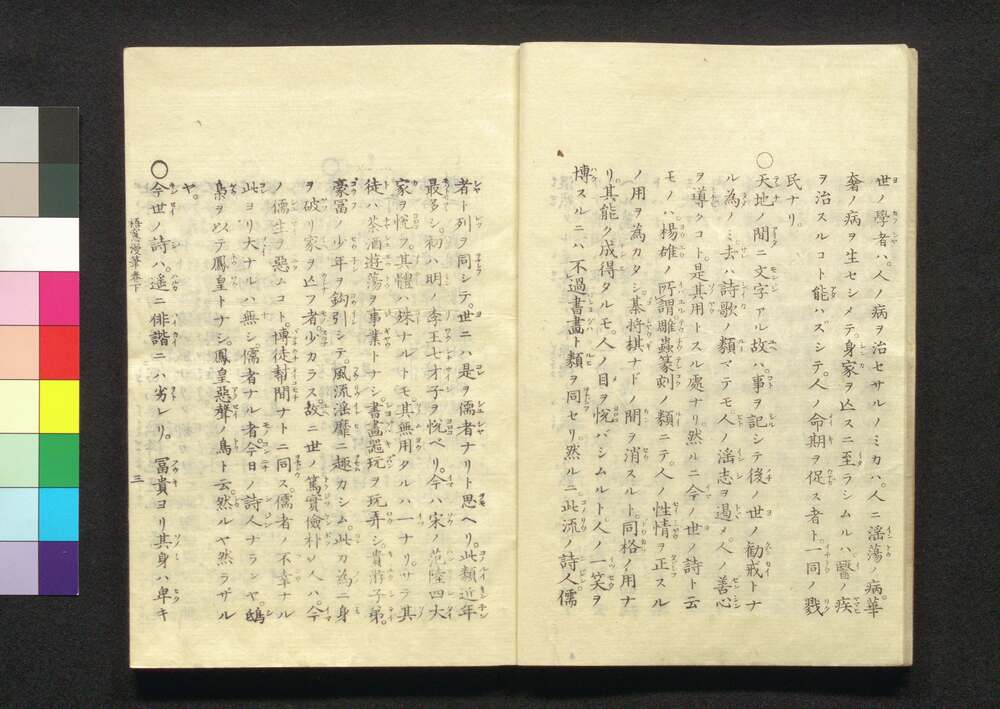 世ノ學者ハ。人ノ病ヲ治セサルノミカハ。人ニ淫蕩ノ病。華
奢ノ病ヲ生セシメテ。身家ヲ亾スニ至ラシムルハ。醫ノ疾
ヲ治スルコト能ハズシテ。人ノ命期ヲ促ス者ト。一同ノ戮
民ナリ。
○天地ノ間ニ文字アル故ハ。事ヲ記シテ後ノ世ノ勧戒トナ
ル為ノミ。去ハ詩歌ノ類マテモ。人ノ淫志ヲ遏メ。人ノ善心
ヲ導クコト。是其用トスル處ナリ。然ルニ今ノ世ノ詩ト云
モノハ。楊碓ノ所謂雕蟲篆刻ノ類ニテ。人ノ性情ヲ正スル
ノ用ヲ為カタシ。棊将棋ナドノ間ヲ消スルト。同格ノ用ナ
リ。其能ク成得タルモ。人ノ目ヲ悦バシムルト。人ノ一笑ヲ
博スルニハ。不過書畫ト類ヲ同セリ。然ルニ此流ノ詩人。儒
者ト列ヲ同シテ。世ニハ是ヲ儒者ナリト思ヘリ。此類近年
最多シ。初ハ明ノ李王七才子ヲ悦ベリ。今ハ宋ノ范陸四大
家ヲ悦フ。其體ハ殊ナルトモ。其無用タルハ一ナリ。サラ其
徒ハ茶酒遊蕩ヲ事業トナシ。書畵器玩ヲ玩弄シ。貴游子弟。
豪冨ノ少年ヲ鈎引シテ。風流淫靡ニ趣カシム。此カ為ニ身
ヲ破リ家ヲ亾フ者少カラス。故ニ世ノ篤實儉朴ノ人ハ。今
ノ儒生ヲ惡ムコト。博徒幇間ナトニ同ス。儒者ノ不幸ナル。
此ヨリ大ナルハ無シ。儒者ナル者。今日ノ詩人ナランヤ。鴟
梟ヲ以テ鳳皇トナシ。鳳皇惡聲ノ鳥ト云。然ルヤ然ラザル
ヤ。
○今世ノ詩ハ。遥ニ俳諧ニハ劣レリ。冨貴ヨリ其身ハ卑キ
梧窓漫筆巻下
三